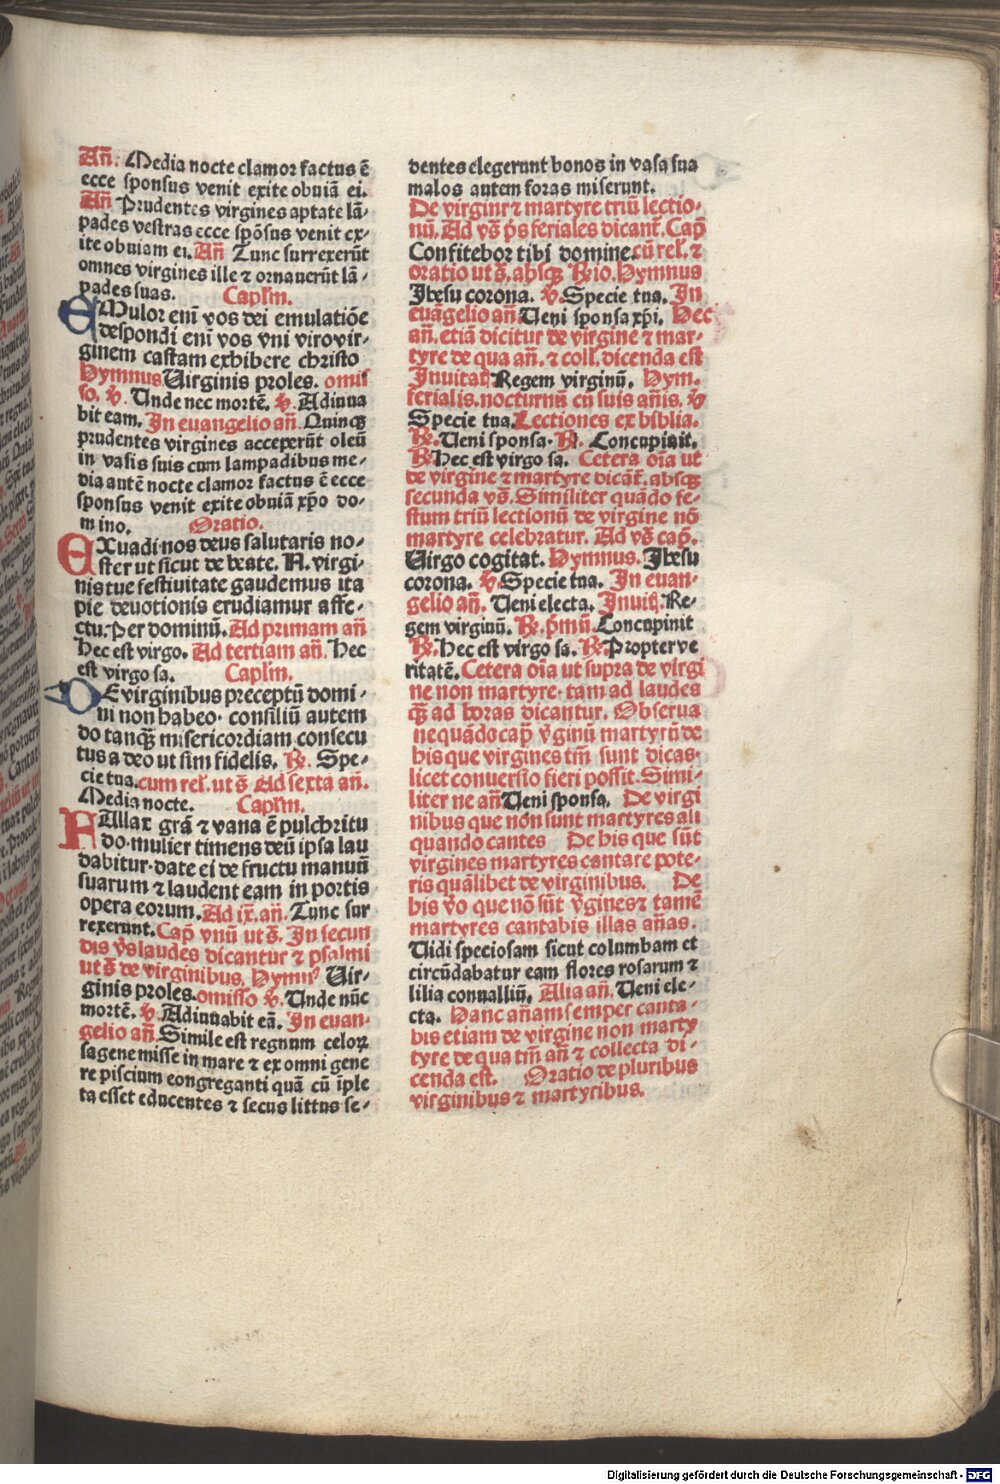 Añ. Media nocte clamor factus ē
ecce sponsus venit exite obuiā ei.
Añ Prudentes virgines aptate lā-
pades vestras ecce spōsus venit ex-
ite obuiam ei. Añ Tunc surrexerūt
omnes virgines ille ⁊ ornauerūt lā-
pades suas. Caplm̄.
EMulor eni vos dei emulatiōe
despondi eni vos vni viro vir-
ginem castam exhibere christo
Hymnus Uirginis proles. omis
so. ℣. Unde nec mortē. ℣. Adiuua
bit eam. In euangelio añ. Quinqꝫ
prudentes virgines acceperūt oleū
in vasis suis cum lampadibus me-
dia autē nocte clamor factus ē ecce
sponsus venit exite obuiā xp̄o do-
mino. Oratio.
EXuadi nos deus salutaris no-
ster ut sicut de beate. N. virgi-
nis tue festiuitate gaudemus ita
pie deuotionis erudiamur affe-
ctu. Per dominū. Ad primam añ
Hec est virgo. Ad tertiam añ. Hec
est virgo sa. Caplm̄.
DE virginibus preceptū domi-
ni non habeo. consiliū autem
do tanqꝫ misericordiam consecu
tus a deo ut sim fidelis. ℟. Spe-
cie tua. cum rel'. ut s̄. Ad sexta añ.
Media nocte. Caplm̄.
FAllax grā ⁊ vana ē pulchritu
do. mulier timens deū ipsa lau
dabitur. date ei de fructu manuū
suarum ⁊ laudent eam in portis
opera eorum. Ad ix. añ. Tunc sur
rexerunt. Cap̄ vnū ut s̄. In secun
dis v̄s laudes dicantur ⁊ psalmi
ut s̄ de virginibus. Hymn9 Uir-
ginis proles. omisso ℣. Unde nūc
mortē. ℣. Adiuuabit eā. In euan-
gelio añ. Simile est regnum celoꝝ
sagene misse in mare ⁊ ex omni gene
re piscium congreganti quā cū īple
ta esset educentes ⁊ secus littus se-
dentes elegerunt bonos in vasa sua
malos autem foras miserunt.
De virgine ⁊ martyre triū lectio-
nū. Ad vs̄ p̄s feriales dicant̄. Cap̄
Confitebor tibi domine. cū rel'. ⁊
oratio ut s̄. absqꝫ ℟io. Hymnus
Jhesu corona. ℣. Specie tua. In
euāgelio añ. Ueni sponsa xp̄i. Hec
añ. etiā dicitur de virgine ⁊ mar-
tyre de qua añ. ⁊ coll'. dicenda est
Inuitaꝭ Regem virginū. Hym.
ferialis. nocturnū cū suis añis. ℣
Specie tua. Lectiones ex biblia.
℟. Ueni sponsa. ℟. Concupiuit.
℟. Hec est virgo sa. Cetera oīa ut
de virgine ⁊ martyre dicāt̄. absqꝫ
secunda vs̄. Similiter quādo fe-
stum triū lectionū de virgine nō
martyre celebratur. Ad vs̄ cap̄.
Uirgo cogitat. Hymnus. Jhesu
corona. ℣. Specie tua. In euan-
gelio añ. Ueni electa. Inuiꝭ. Re-
gem virginū. ℟. p̄mū. Concupiuit
℟. Hec est virgo sa. ℟. Propter ve
ritatē. Cetera oīa ut supra de virgi
ne non martyre. tam ad laudes
qꝫ ad horas dicantur. Obserua
ne quādo cap̄ v̄ginū martyrū de
his que virgines tm̄ sunt dicas.
licet conuersio fieri possit. Simi-
liter ne añ Ueni sponsa. De virgi
nibus que non sunt martyres ali
quando cantes De his que sūt
virgines martyres cantare pote-
ris quālibet de virginibus. De
his v̄o que nō sūt v̄gines ⁊ tamē
martyres cantabis illas añas.
Uidi speciosam sicut columbam et
circūdabatur eam flores rosarum ⁊
lilia conualliū. Alia añ. Ueni ele-
cta. Hanc añam semper canta-
bis etiam de virgine non marty
tyre de qua tm̄ añ ⁊ collecta di-
cenda est. Oratio de pluribus
virginibus ⁊ martyribus.
Digitalisierung gefördert durch die Deutsche Forschungsgemeinschaft - DFG